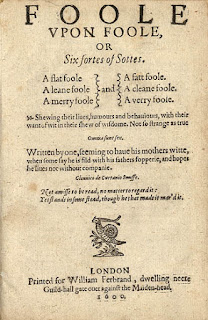 FOOLE
VPON FOOLE,
OR
Six sortes of Sottes.
A flat foole
A leane foole
A merry foole
and
A fatt foole.
A cleane foole.
A verry foole.
Shewing their liues, humours and behauiours, with their
want of wit in their shew of wisdome. Not so strange as true
Omnia sunt sex.
Written by one, seeming to haue his mothers witte,
when some say he is fild with his fathers fopperie, and hopes
he liues not without companie.
Clonnico de Curtanio Snuffe.
Not amisse to be read, no matter to regard it:
Yet stands in some stead, though he that made it mar'd it.
LONDON
Printed for William Ferbrand, dwelling neere
Guild-hall gate ouer against the Maiden-head.
1600.